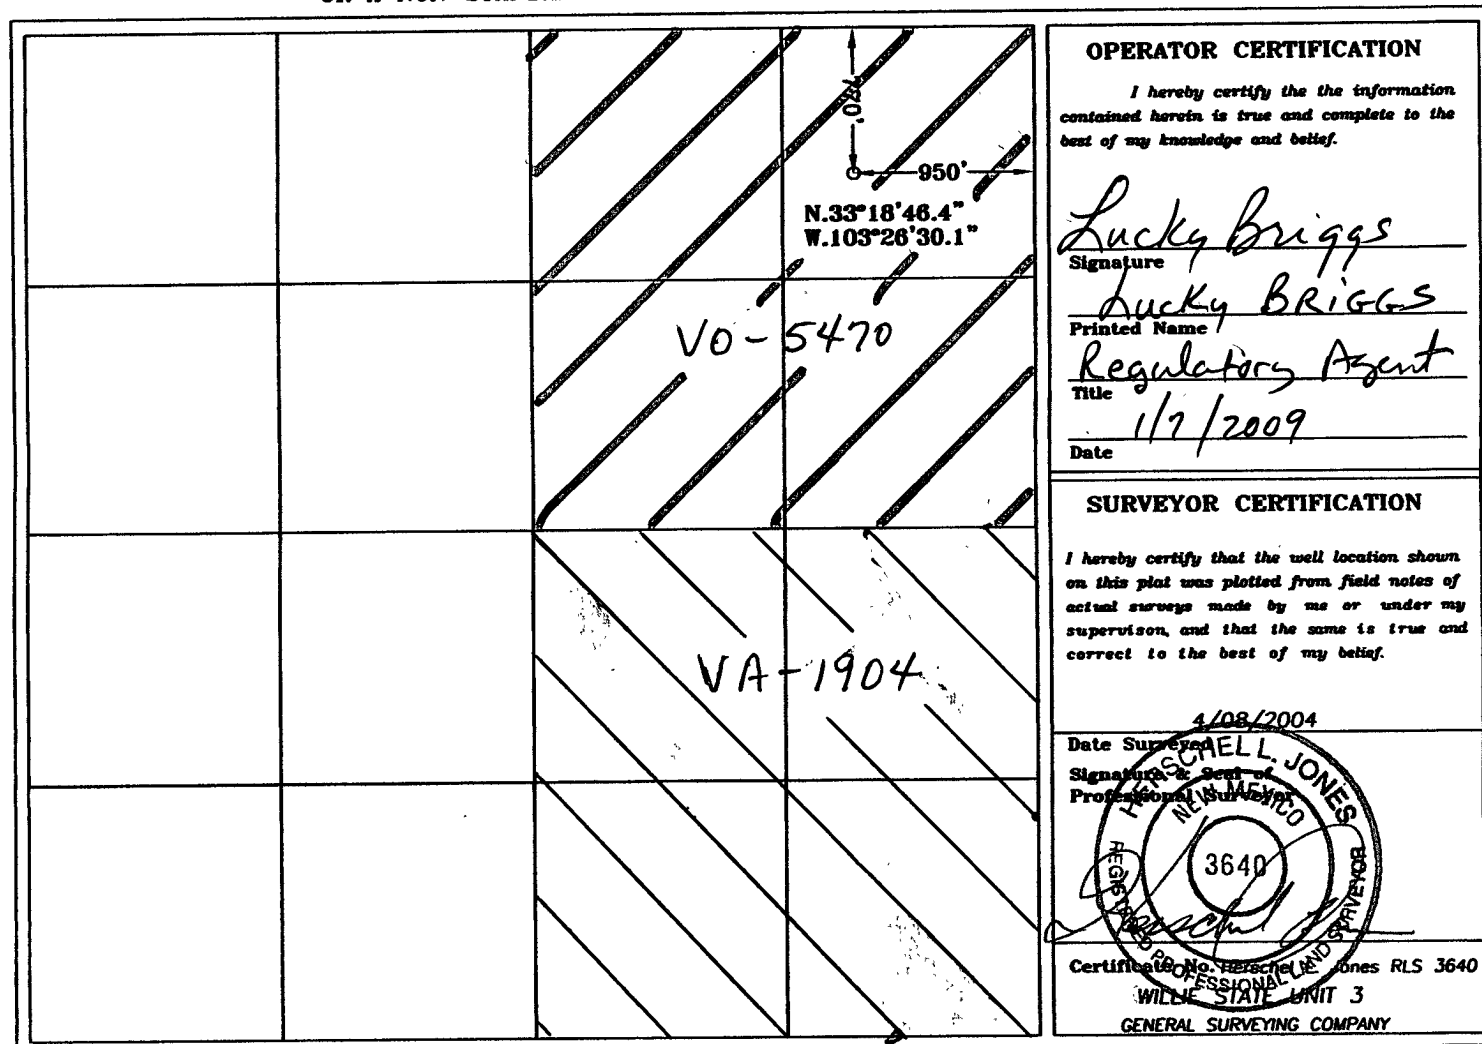 780'
950'
N.33°18'46.4"
W.103°26'30.1"
VO-5470
VA-1904
OPERATOR CERTIFICATION
I hereby certify the the information
contained herein is true and complete to the
best of my knowledge and belief.
Lucky Briggs
Signature
Lucky BRIGGS
Printed Name
Regulatory Agent
Title
1/7/2009
Date
SURVEYOR CERTIFICATION
I hereby certify that the well location shown
on this plat was plotted from field notes of
actual surveys made by me or under my
supervison, and that the same is true and
correct to the best of my belief.
4/08/2004
Date Surveyed
Signature & Seal of
Professional Surveyor
HERSCHEL L. JONES
NEW MEXICO
3640
REGISTERED PROFESSIONAL LAND SURVEYOR
Certificate No. Herschel L. Jones RLS 3640
WILLIE STATE UNIT 3
GENERAL SURVEYING COMPANY